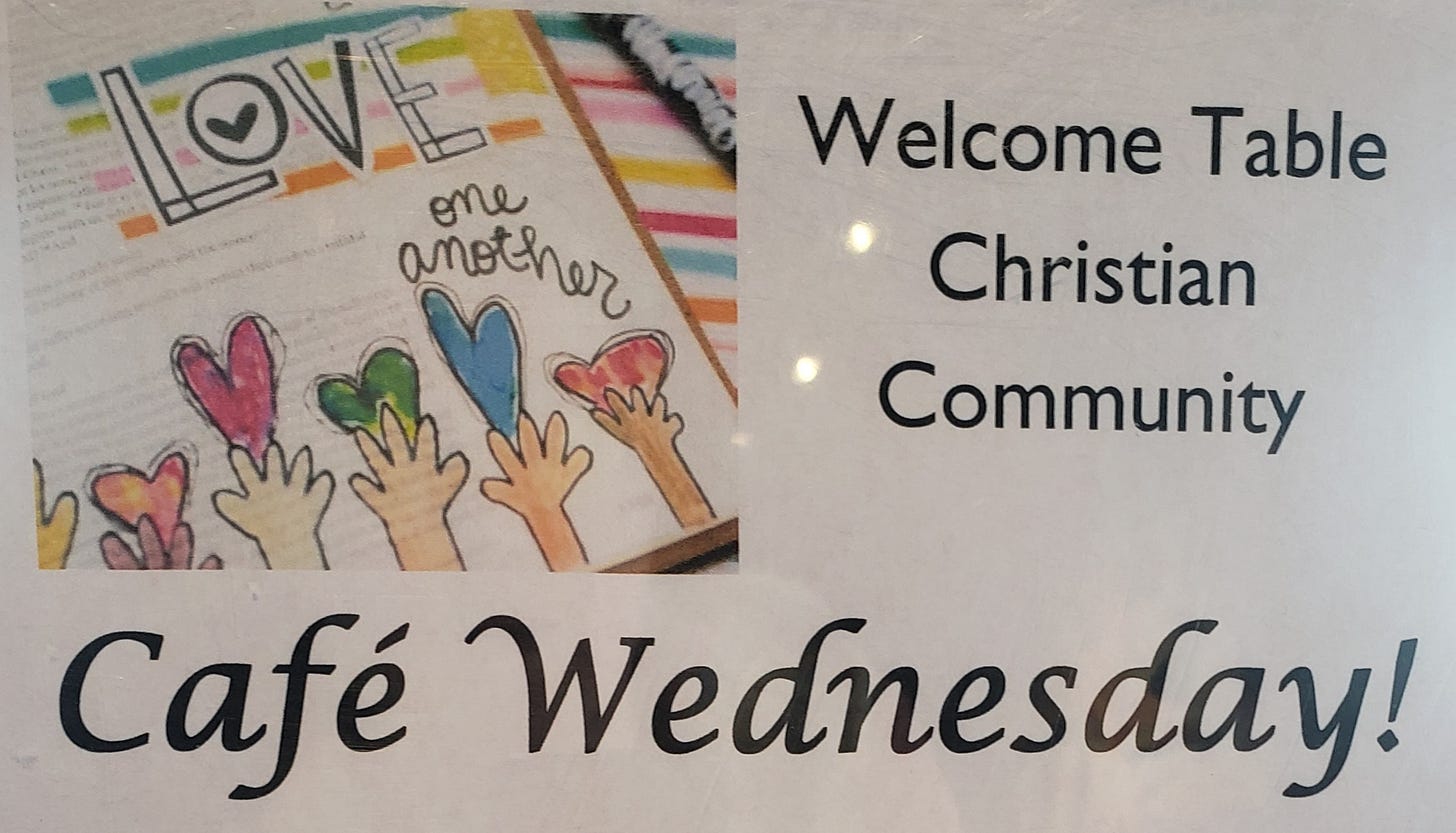 LOVE
one
another
Welcome Table
Christian
Community
Café Wednesday!